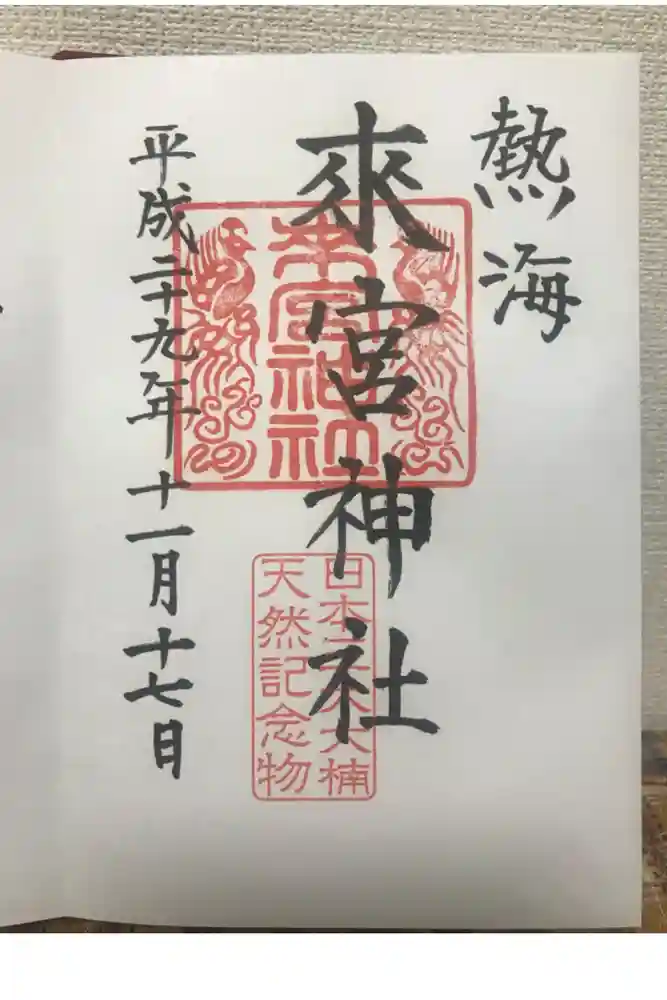 熱海
來宮神社
來宮神社
平成二十九年十一月十七日
天然記念物